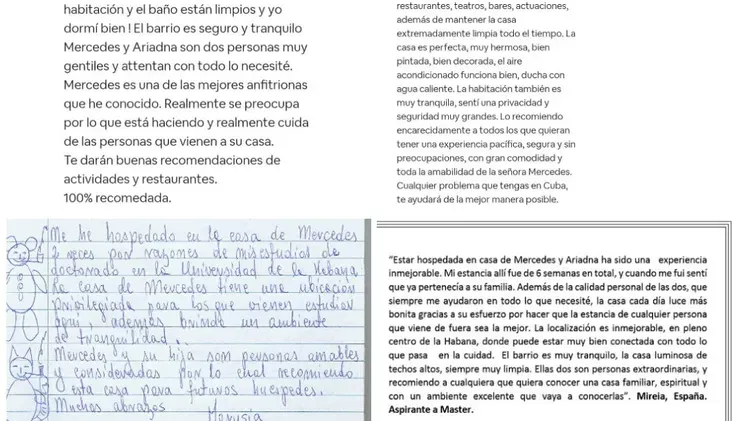 habitación y el baño están limpios y yo
dormí bien ! El barrio es seguro y tranquilo
Mercedes y Ariadna son dos personas muy
gentiles y attentan con todo lo necesité.
Mercedes es una de las mejores anfitrionas
que he conocido. Realmente se preocupa
por lo que está haciendo y realmente cuida
de las personas que vienen a su casa.
Te darán buenas recomendaciones de
actividades y restaurantes.
100% recomedada.
restaurantes, teatros, bares, actuaciones,
además de mantener la casa
extremadamente limpia todo el tiempo. La
casa es perfecta, muy hermosa, bien
pintada, bien decorada, el aire
acondicionado funciona bien, ducha con
agua caliente. La habitación también es
muy tranquila, sentí una privacidad y
seguridad muy grandes. Lo recomiendo
encarecidamente a todos los que quieran
tener una experiencia pacífica, segura y sin
preocupaciones, con gran comodidad y
toda la amabilidad de la señora Mercedes.
Cualquier problema que tengas en Cuba,
te ayudará de la mejor manera posible.
Me he hospedado en la casa de Mercedes
2 veces por razones de mis estudios de
doctorado en la Universidad de la Habana
La casa de Mercedes tiene una ubicación
privilegiada para los que vienen estudiar
aquí, además brinda un ambiente
de tranquilidad..
Mercedes y su hija son personas amables
y consideradas por lo cual recomiendo
esta casa para futuros huéspedes.
Muchos abrazos
"Estar hospedada en casa de Mercedes y Ariadna ha sido una experiencia
inmejorable. Mi estancia allí fue de 6 semanas en total, y cuando me fui sentí
que ya pertenecía a su familia. Además de la calidad personal de las dos, que
siempre me ayudaron en todo lo que necesité, la casa cada día luce más
bonita gracias a su esfuerzo por hacer que la estancia de cualquier persona
que viene de fuera sea la mejor. La localización es inmejorable, en pleno
centro de la Habana, donde puede estar muy bien conectada con todo lo
que pasa en la cuidad. El barrio es muy tranquilo, la casa luminosa de
techos altos, siempre muy limpia. Ellas dos son personas extraordinarias, y
recomiendo a cualquiera que quiera conocer una casa familiar, espiritual y
con un ambiente excelente que vaya a conocerlas". Mireia, España.
Aspirante a Master.